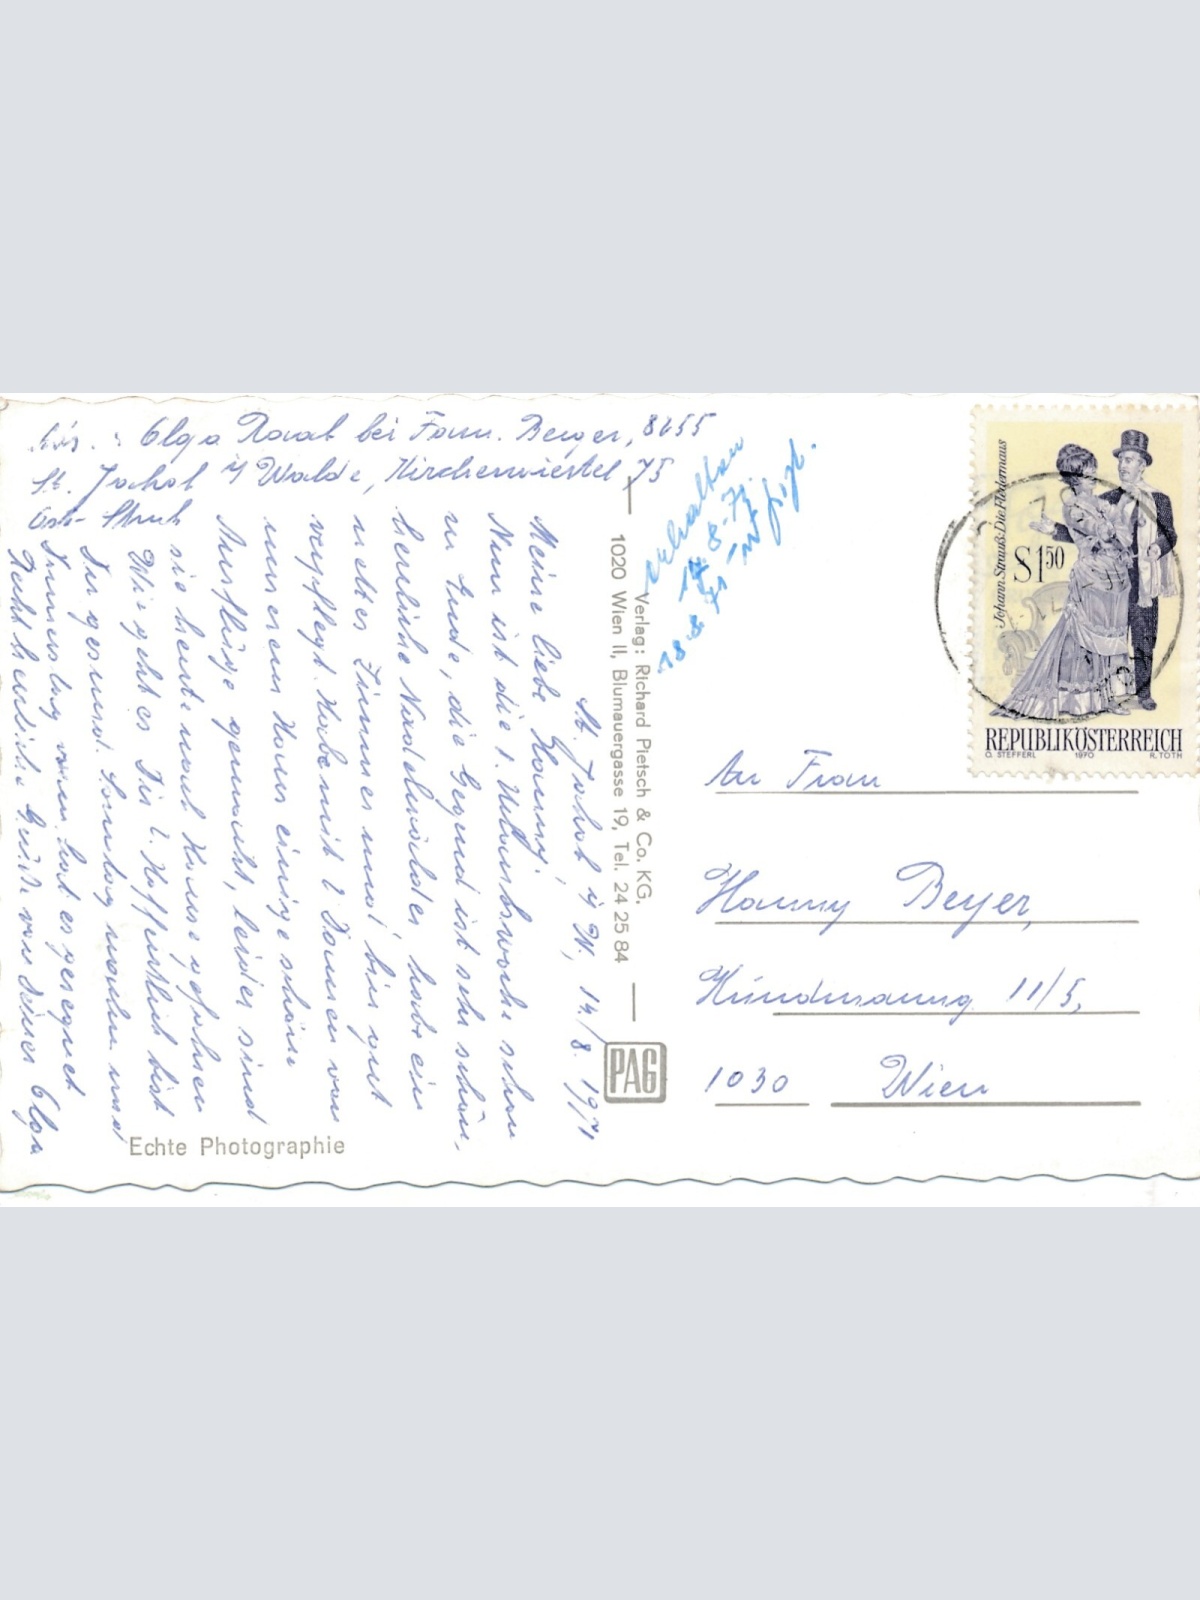 Abs.: Olga Raab bei Fam. Berger, 8255
St. Jakob i/ Walde, Kirchenviertel 75
Ost-Stmk
St. Jakob i/ W, 14/8. 1971
Meine liebe Hanny!
Nun ist die 1. Urlaubswoche schon
zu Ende, die Gegend ist sehr schön,
herrliche Nadelwälder, habe ein
nettes Zimmer und bin gut
verpflegt. Habe mit 2 Damen von
unserem Haus einige schöne
Ausflüge gemacht, leider sind
sie heute nach Hause gefahren
Wie geht es Dir? Hoffentlich bist
Du gesund. Sonntag
es geregnet
Recht herzliche Grüße von Deiner Olga
Echte Photographie
Verlag: Richard Pietsch & Co. KG,
1020 Wien II, Blumauergasse 19, Tel. 24 25 84
PAG
erhalten
18.8.71
Johann Strauß: Die Fledermaus
S 1.50
REPUBLIK ÖSTERREICH
O. STEFFERL 1970 R. TOTH
An Frau
Hanny Beyer,
Hündmanng 11/5,
1030 Wien